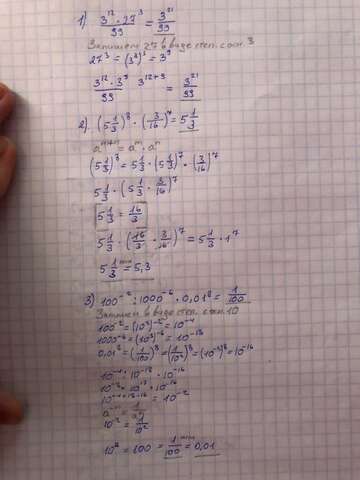 1) 3¹² · 27³ / 99 = 3²¹ / 99
Запишем 27 в виде степ. с осн. 3
27³ = (3³)³ = 3⁹
3¹² · 3⁹ / 99 3¹²⁺⁹ = 3²¹ / 99
2) (5 1/3)⁸ · (3/16)⁷ = 5 1/3
aᵐ⁺ⁿ = aᵐ · aⁿ
(5 1/3)⁸ = 5 1/3 · (5 1/3)⁷ · (3/16)⁷
5 1/3 · (5 1/3 · 3/16)⁷
5 1/3 = 16/3
5 1/3 · (16/3 · 3/16)⁷ = 5 1/3 · 1⁷
5 1/3 или = 5,3
3) 100⁻² : 1000⁻⁶ · 0,01⁸ = 1/100
Запишем в виде степ. с осн. 10
100⁻² = (10²)⁻² = 10⁻⁴
1000⁻⁶ = (10³)⁻⁶ = 10⁻¹⁸
0,01⁸ = (1/100)⁸ = (1/10²)⁸ = (10⁻²)⁸ = 10⁻¹⁶
10⁻⁴ : 10⁻¹⁸ · 10⁻¹⁶
10⁻⁴ · 10¹⁸ · 10⁻¹⁶
10⁻⁴⁺¹⁸⁻¹⁶ = 10⁻²
a⁻ⁿ = 1/aⁿ
10⁻² = 1/10²
10² = 100 = 1/100 или = 0,01